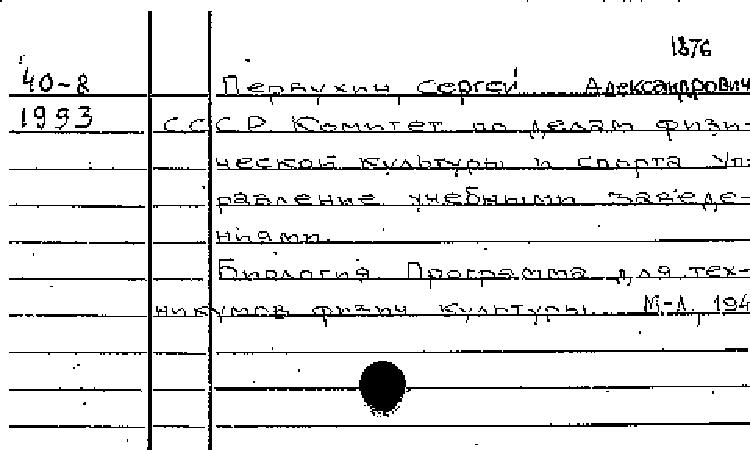 1876
40-8 Первухин Сергей Александрович
1993 СССР Комитет по делам физи-
ческой культуры и спорта Уп-
равление учебными заведе-
ниями.
Биология. Программа для тех-
никумов физич культуры. М-Л, 194